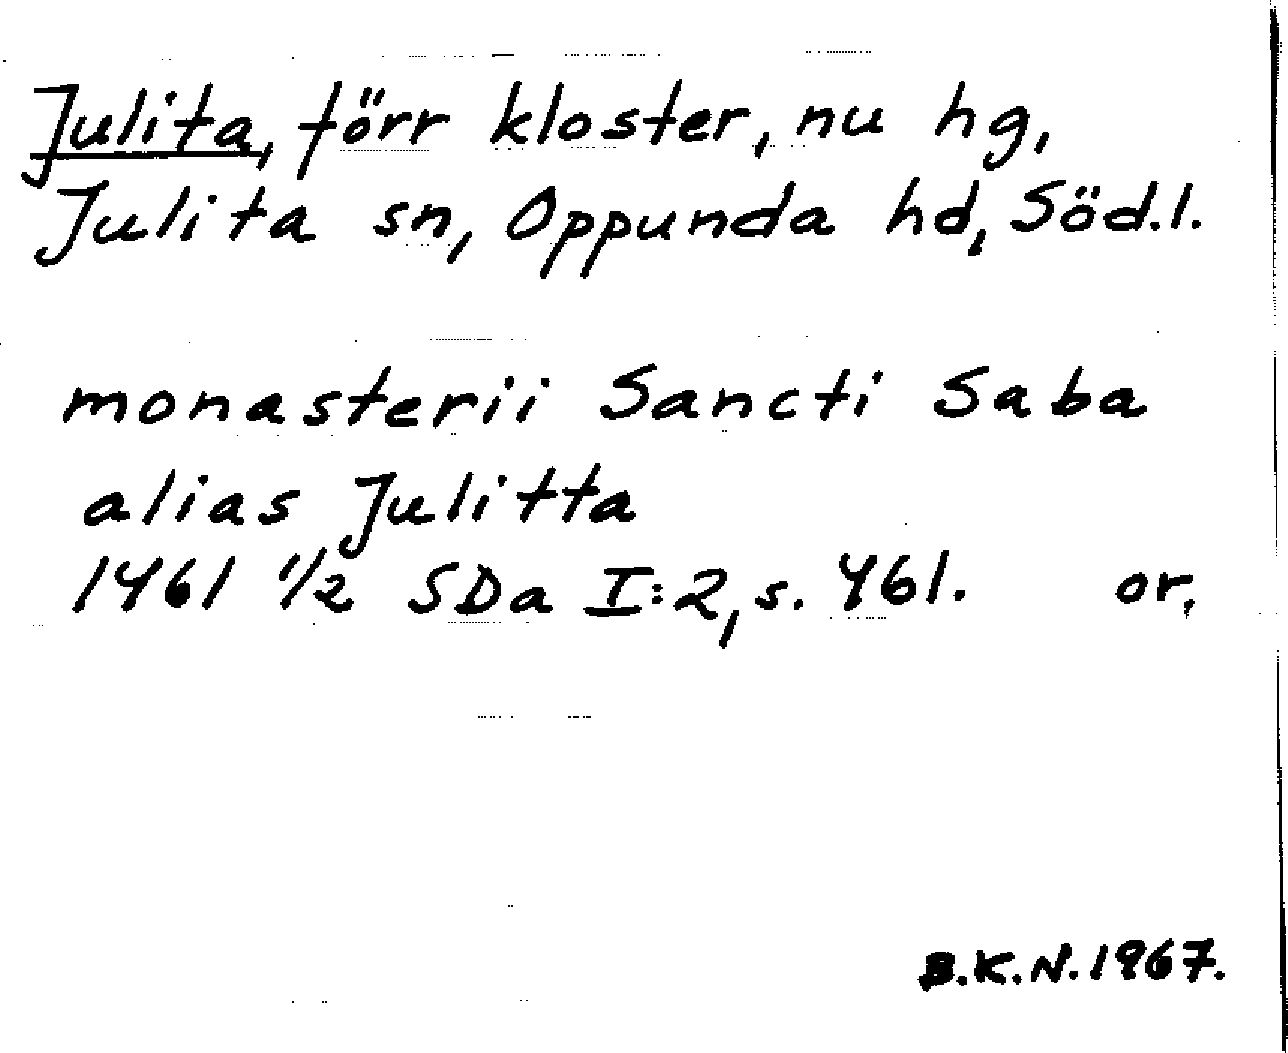 Julita, förr kloster, nu hg,
Julita sn, Oppunda hd, Söd.l.
monasterii Sancti Saba
alias Julitta
1461 1/2 SDa I:2, s. 461. or.
B.K.N. 1967.